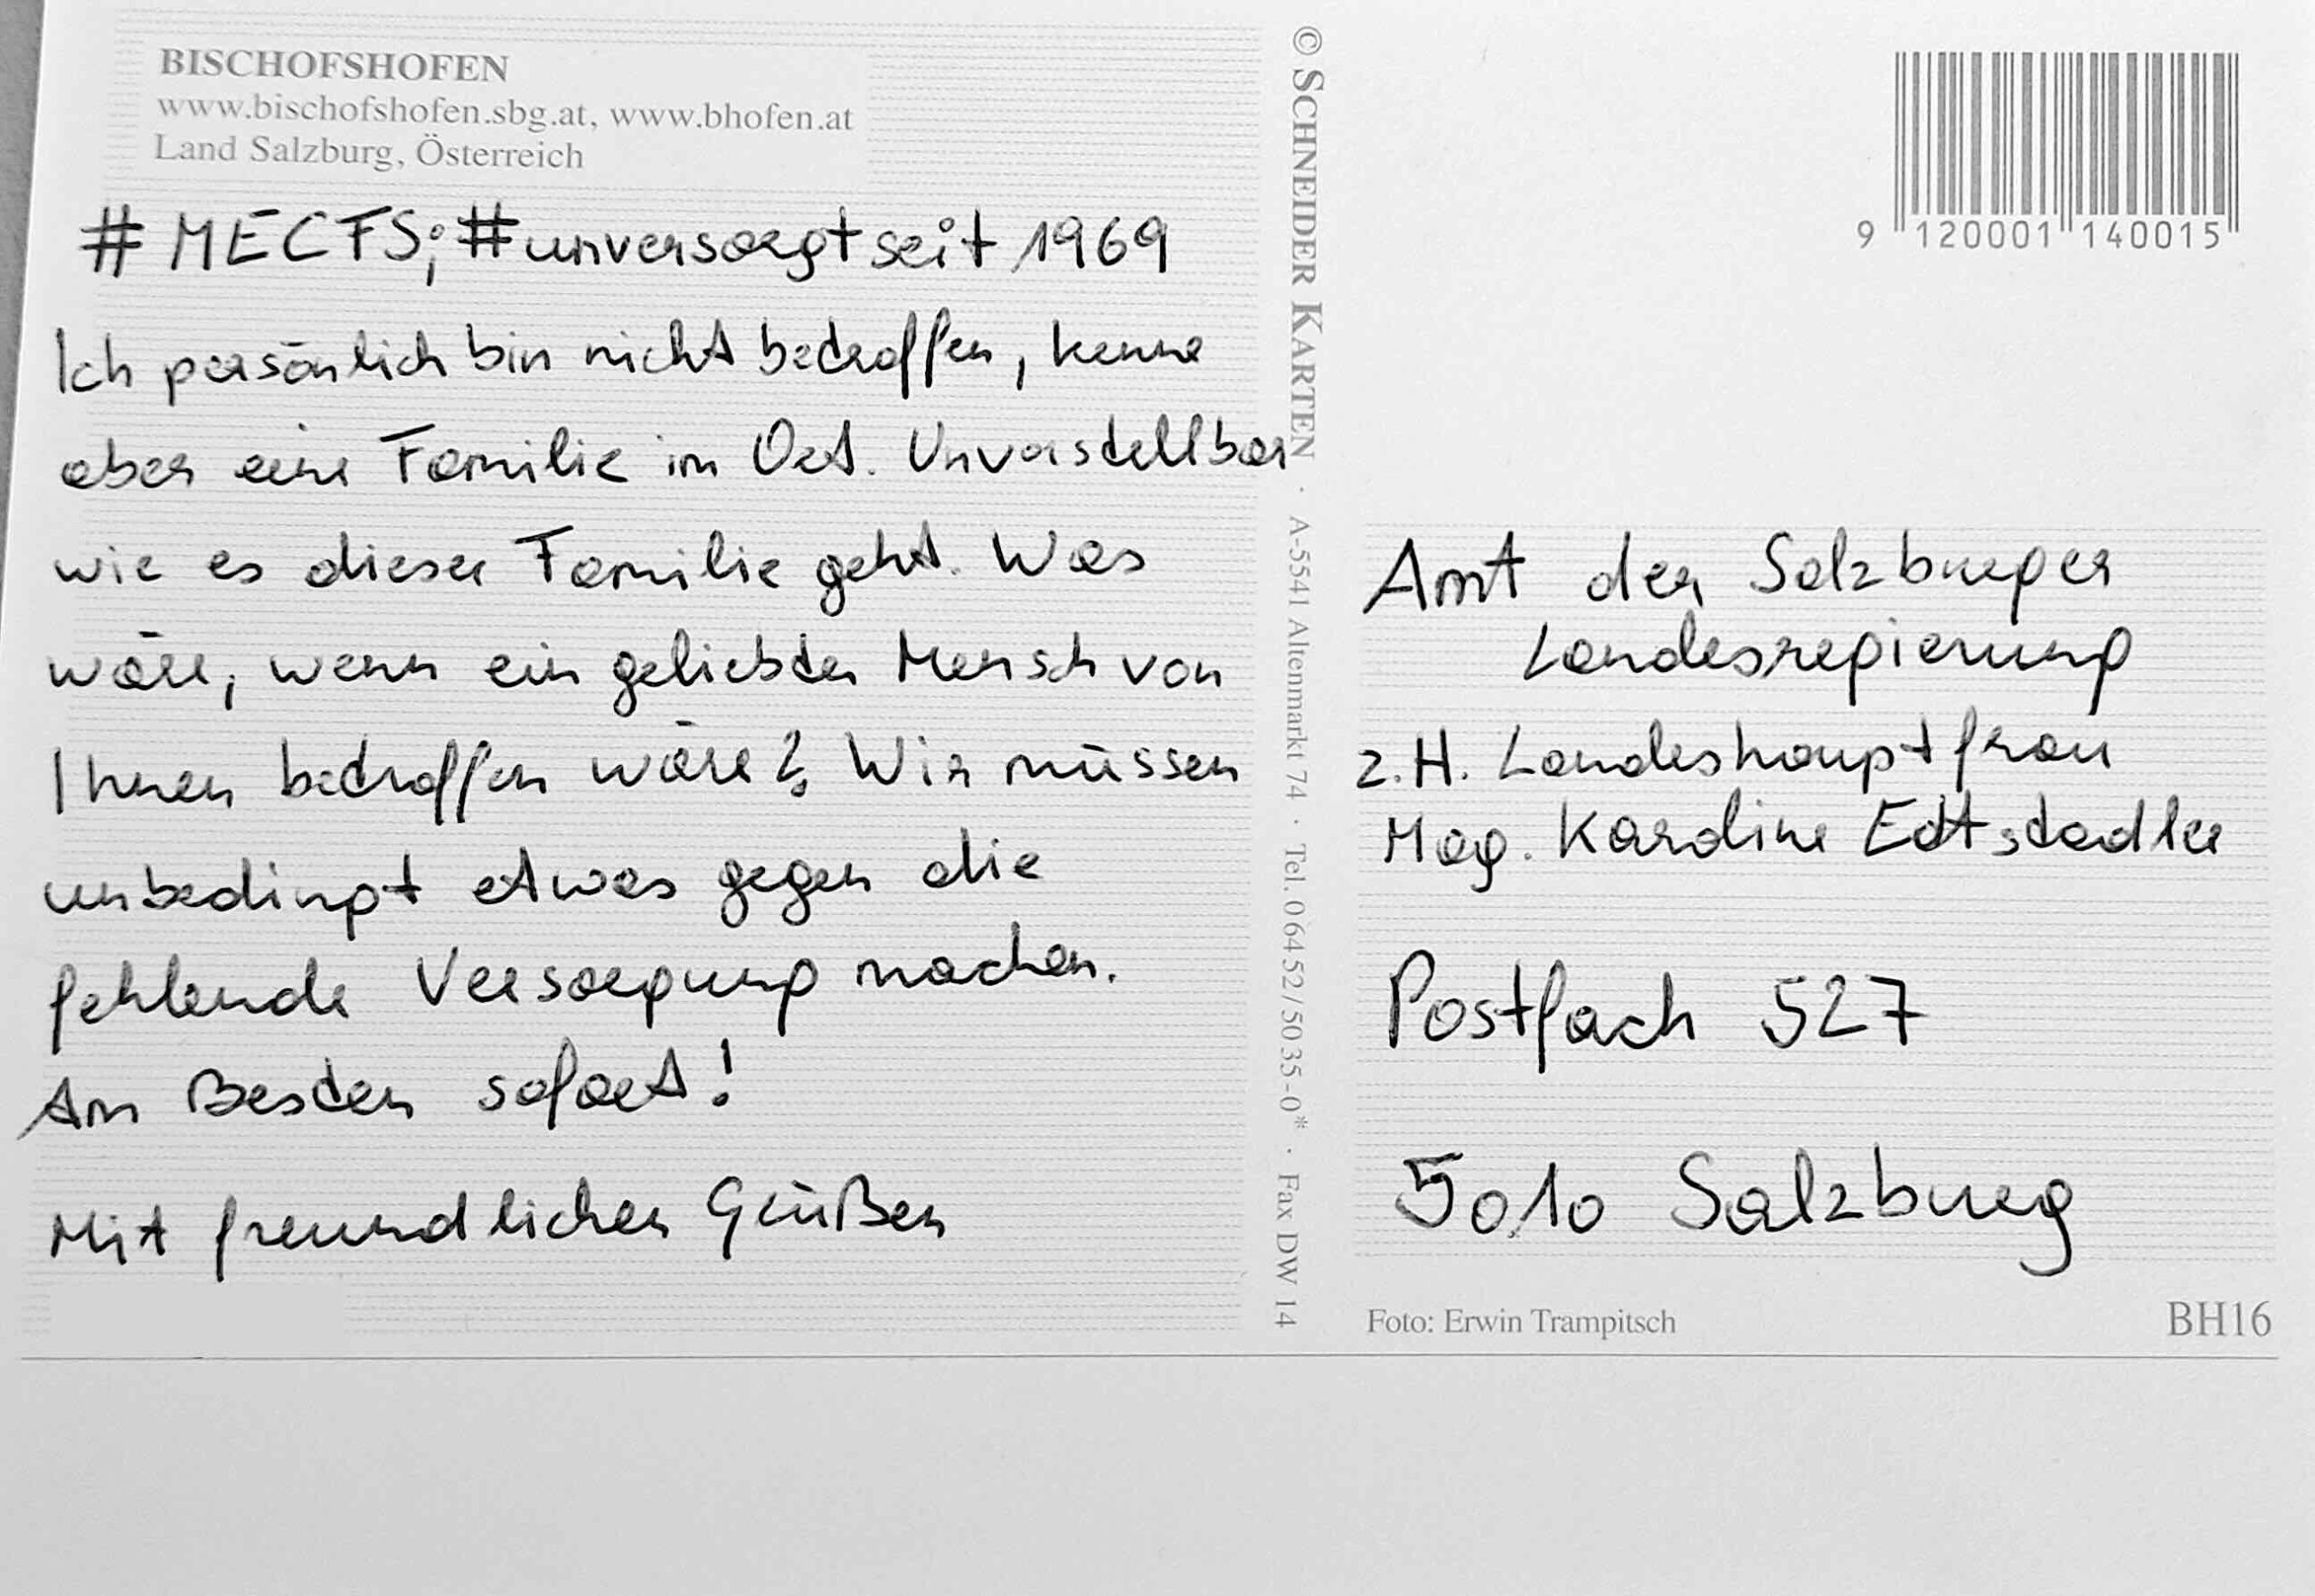 BISCHOFSHOFEN
www.bischofshofen.sbg.at, www.bhofen.at
Land Salzburg, Österreich
#MECFS; #unversorgtseit 1969
Ich persönlich bin nicht betroffen, kenne
aber eine Familie im Ort. Unvorstellbar
wie es dieser Familie geht. Was
wäre, wenn ein geliebter Mensch von
Ihnen betroffen wäre? Wir müssen
unbedingt etwas gegen die
fehlende Versorgung machen.
Am Besten sofort!
Mit freundlichen Grüßen
© SCHNEIDER KARTEN · A-5541 Altenmarkt 74 · Tel. 06452/5035-0* · Fax DW 14
9 120001 140015
Amt der Salzburger
Landesregierung
z.H. Landeshauptfrau
Mag. Karoline Edtstadler
Postfach 527
5010 Salzburg
Foto: Erwin Trampitsch
BH16